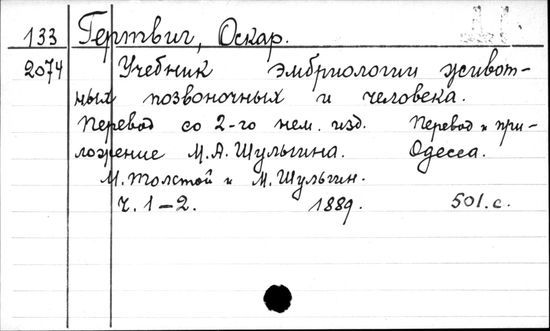 133 Гертвиг, Оскар.
2074 Учебник эмбриологии живот-
ных позвоночных и человека.
Перевод со 2-го нем. изд. Перевод и при-
ложение М.А. Шульгина. Одесса.
М. Толстой и М. Шульгин.
Ч. 1–2. 1889. 501.с.